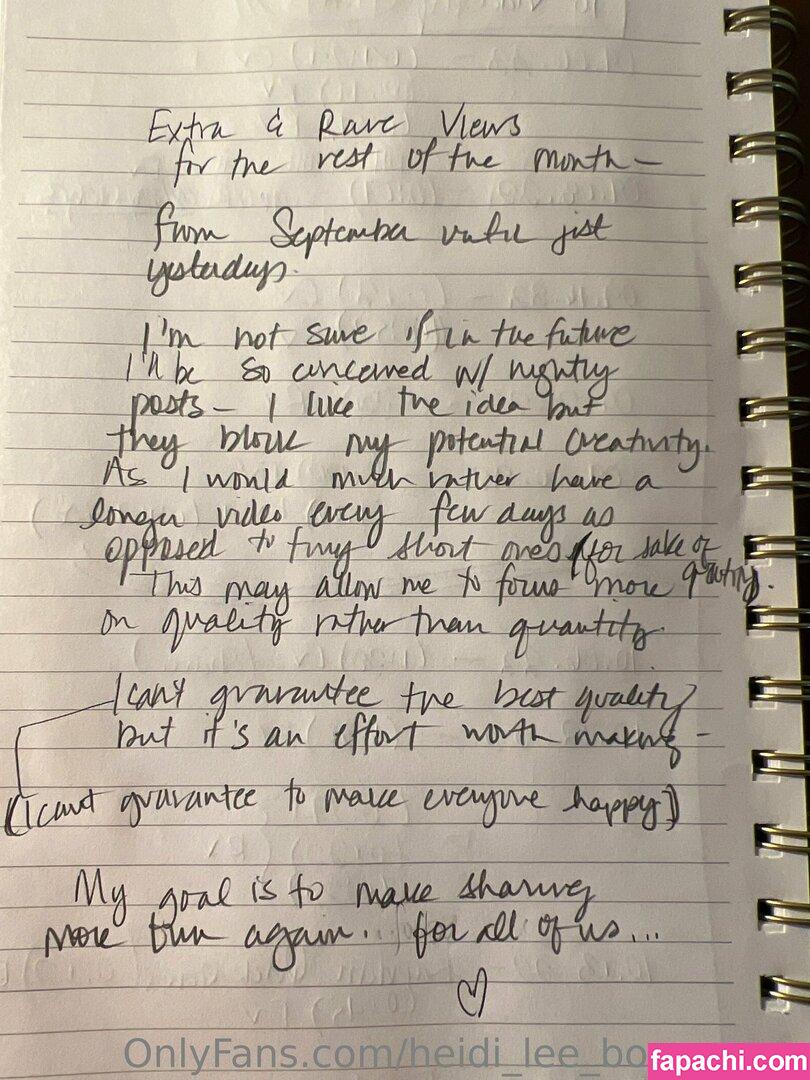 Extra & Rare Views
for the rest of the month –
from September until just
yesterday.
I'm not sure if in the future
I'll be so concerned w/ nightly
posts – I like the idea but
they block my potential creativity.
As I would much rather have a
longer video every few days as
opposed to tiny short ones for sake of
quantity.
This may allow me to focus more
on quality rather than quantity.
I can't guarantee the best quality
but it's an effort worth making –
(I can't guarantee to make everyone happy)
My goal is to make sharing
more fun again.. for all of us...
OnlyFans.com/heidi_lee_bo
fapachi.com